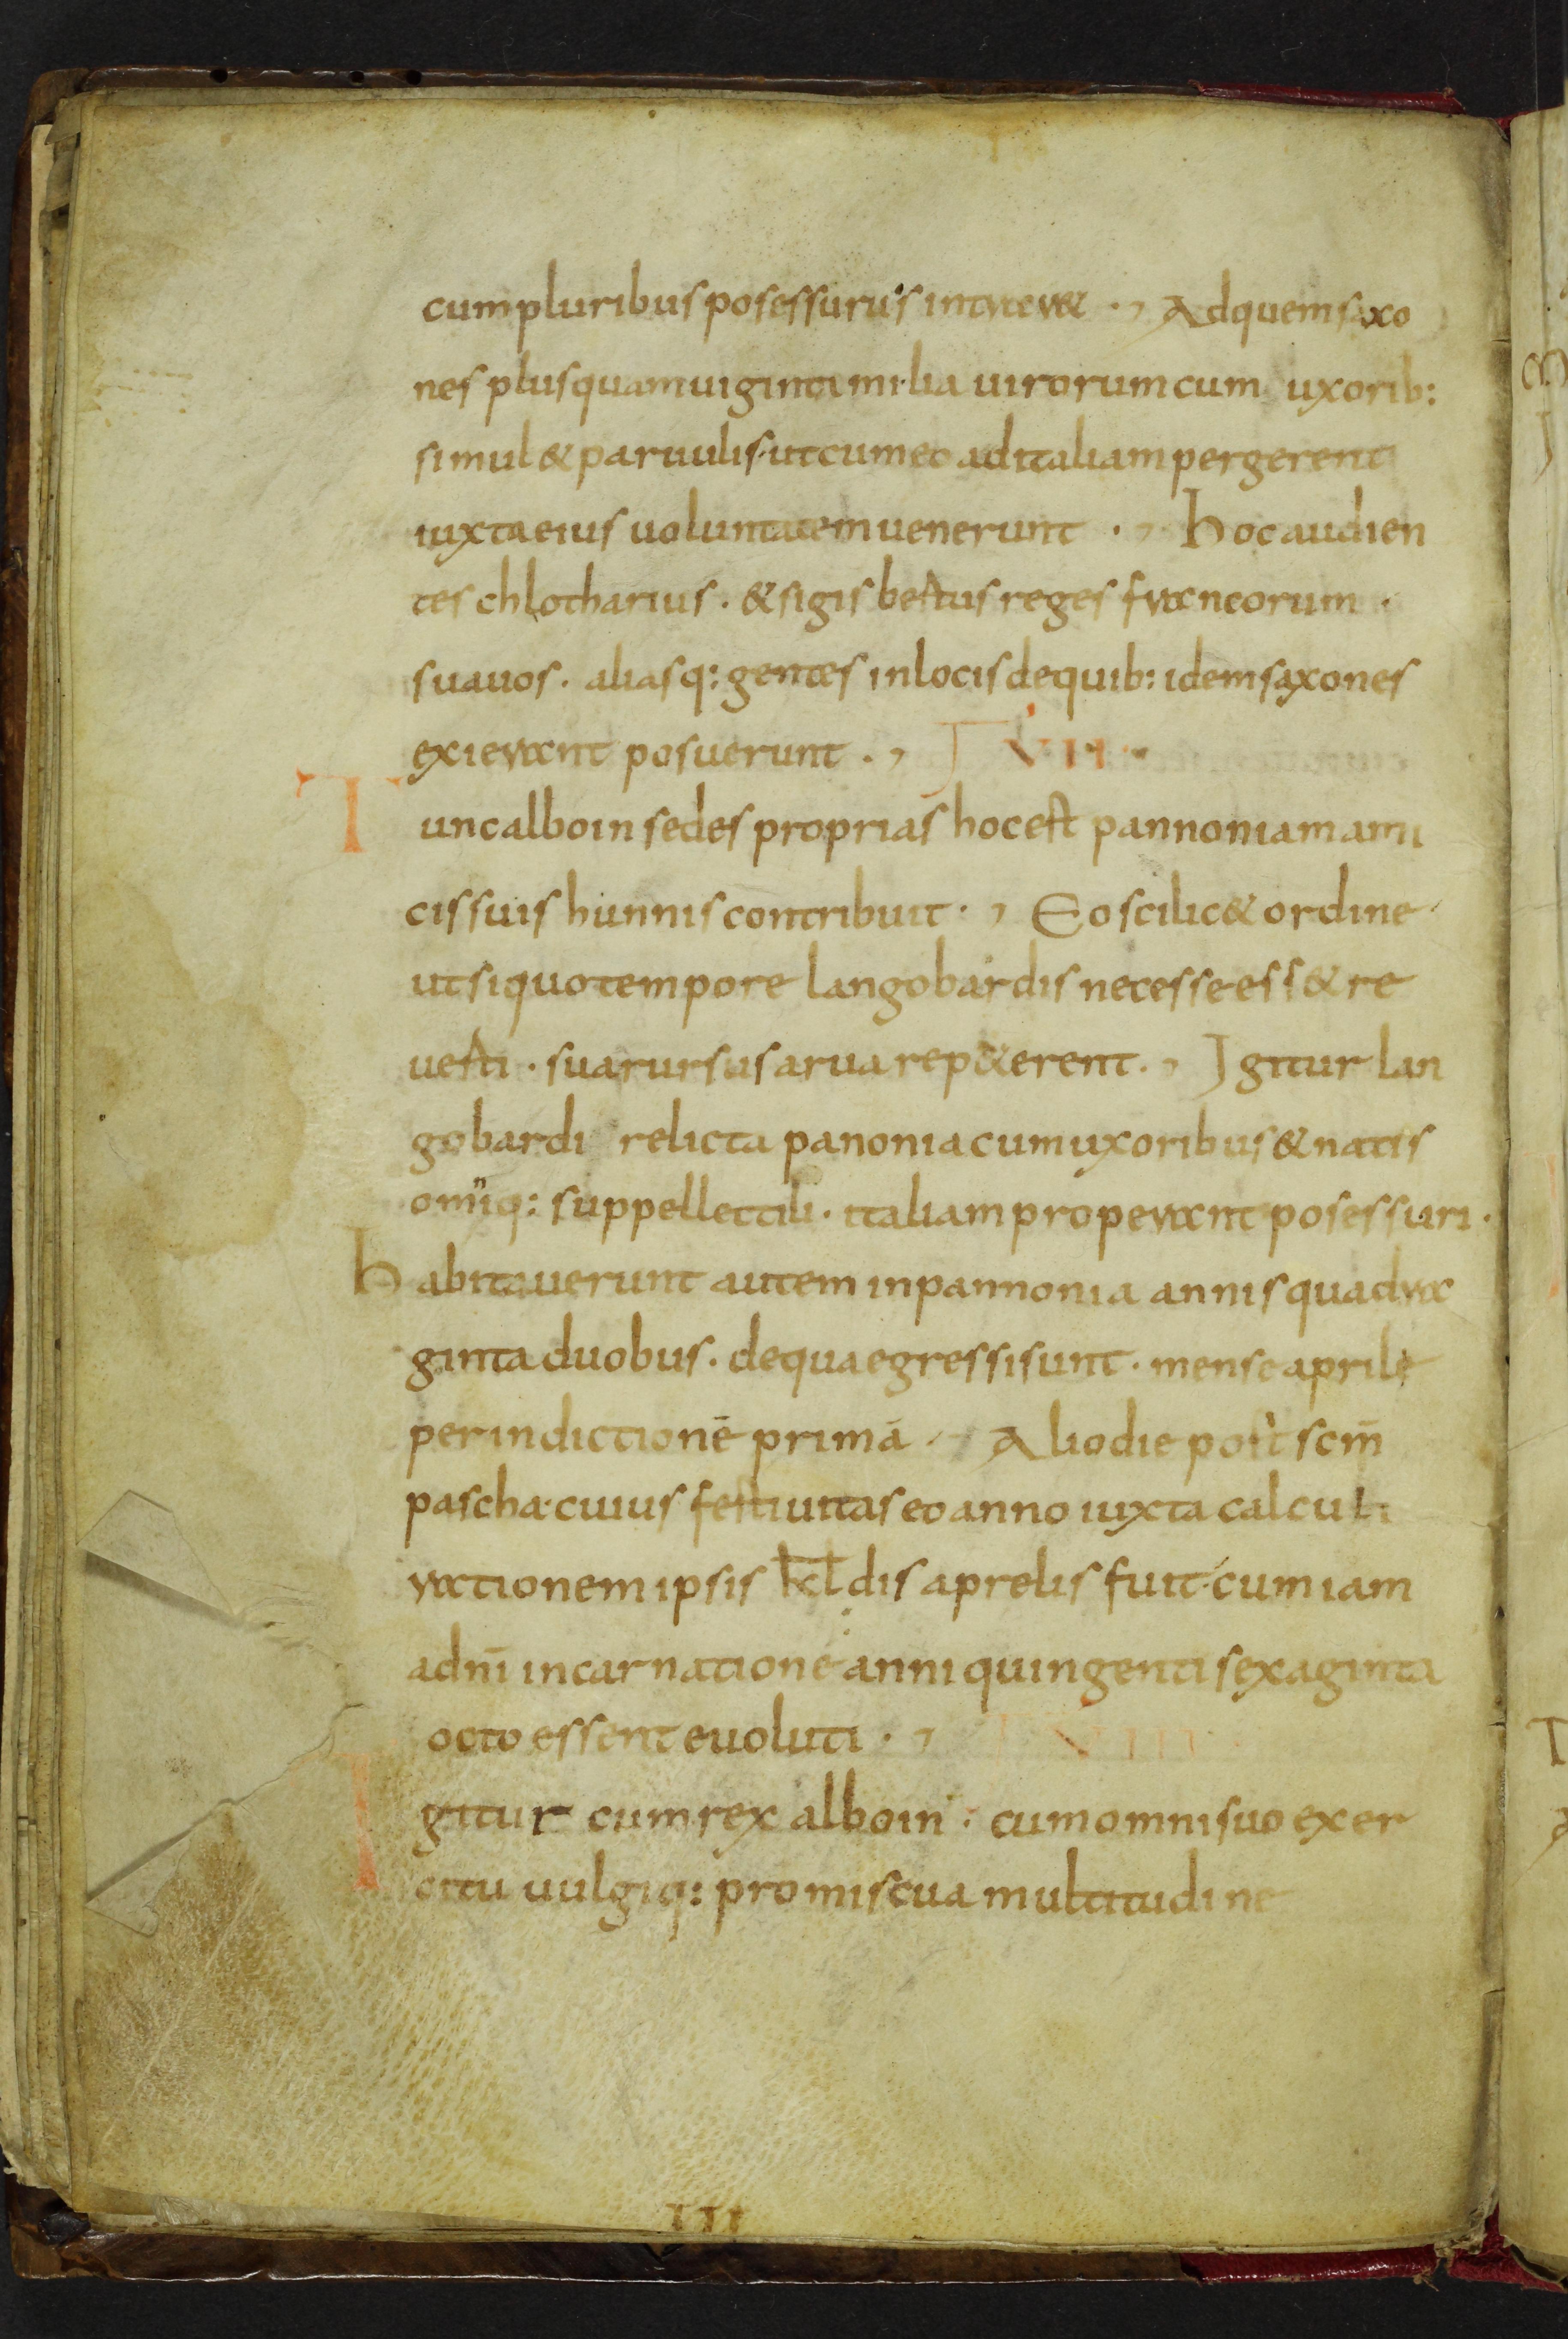 cum pluribus posessurus intraret ., Ad quem saxo
nes plus quam uiginti milia uirorum cum uxorib:
simul & paruulis. ut cum eo ad italiam pergerent
iuxta eius uoluntatem uenerunt ., Hoc audien
tes chlotharius . & sigisbertus reges francorum .
suauos . aliasq: gentes in locis de quib: idem saxones
exierant posuerunt ., VII .
Tunc alboin sedes proprias hoc est pannoniam ami
cis suis hunnis contribuit ., Eo scilic& ordine
ut si quo tempore langobardis necesse ess& re
uerti . sua rursus arua rep&erent ., Igitur lan
gobardi relicta panonia cum uxoribus & natis
omīq: suppellectili . italiam properant posessuri .
Habitauerunt autem in pannonia annis quadra
ginta duobus . de qua egressi sunt . mense aprile
per indictionē primā . Alio die post scm̄
pascha. cuius festiuitas eo anno iuxta calculi
rationem ipsis kl̄dis aprelis fuit. cum iam
a dnī incarnatione anni quingenti sexaginta
octo essent euoluti ., VIII
Igitur cum rex alboin . cum omni suo exer
citu uulgiq: promiscua multitudine
III